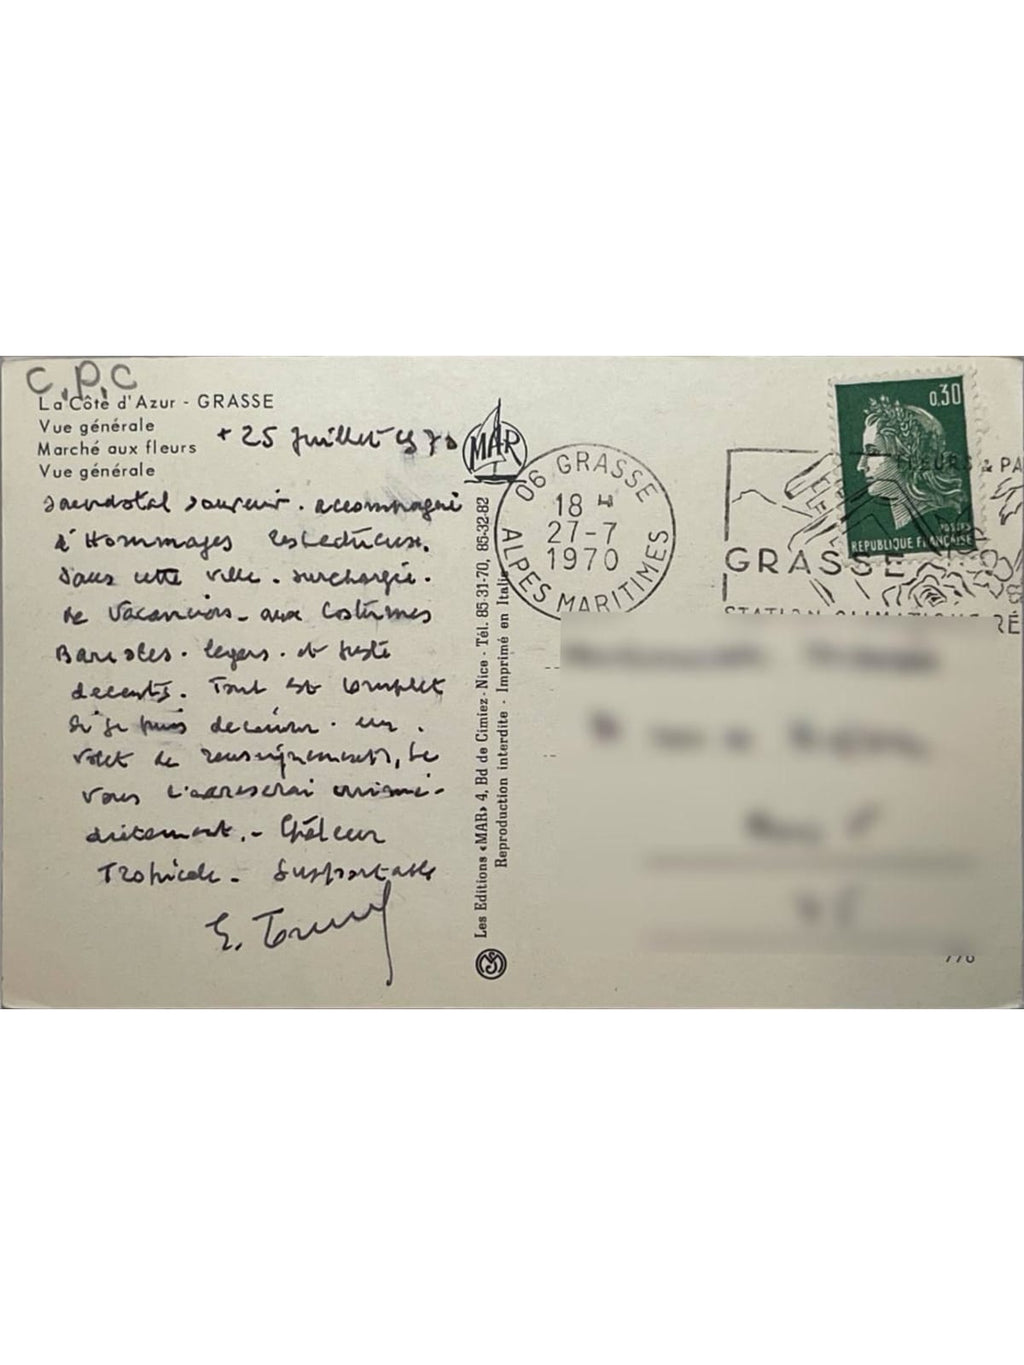 C.P.C
La Côte d'Azur - GRASSE
Vue générale
Marché aux fleurs
Vue générale
+ 25 Juillet 1970
Sacerdotal souvenir. accompagné
d'Hommages respectueux.
Dans cette ville. surchargée.
de Vacanciers. aux Costumes
légers. et juste
decents. Tout est complet
Si je puis decouvrir. un.
volet de renseignements, je
vous l'adresserai immé-
diatement. - Chaleur
Tropicale - Supportable
E.
MAR
Les Editions «MAR» 4, Bd de Cimiez - Nice - Tél. 85-31-70, 85-32-82
Reproduction interdite - Imprimé en Italie
06 GRASSE
18 H
27-7
1970
ALPES MARITIMES
0,30
POSTES
REPUBLIQUE FRANÇAISE
FLEURS & PA
GRASSE
STATION CLIMATIQUE RÉ